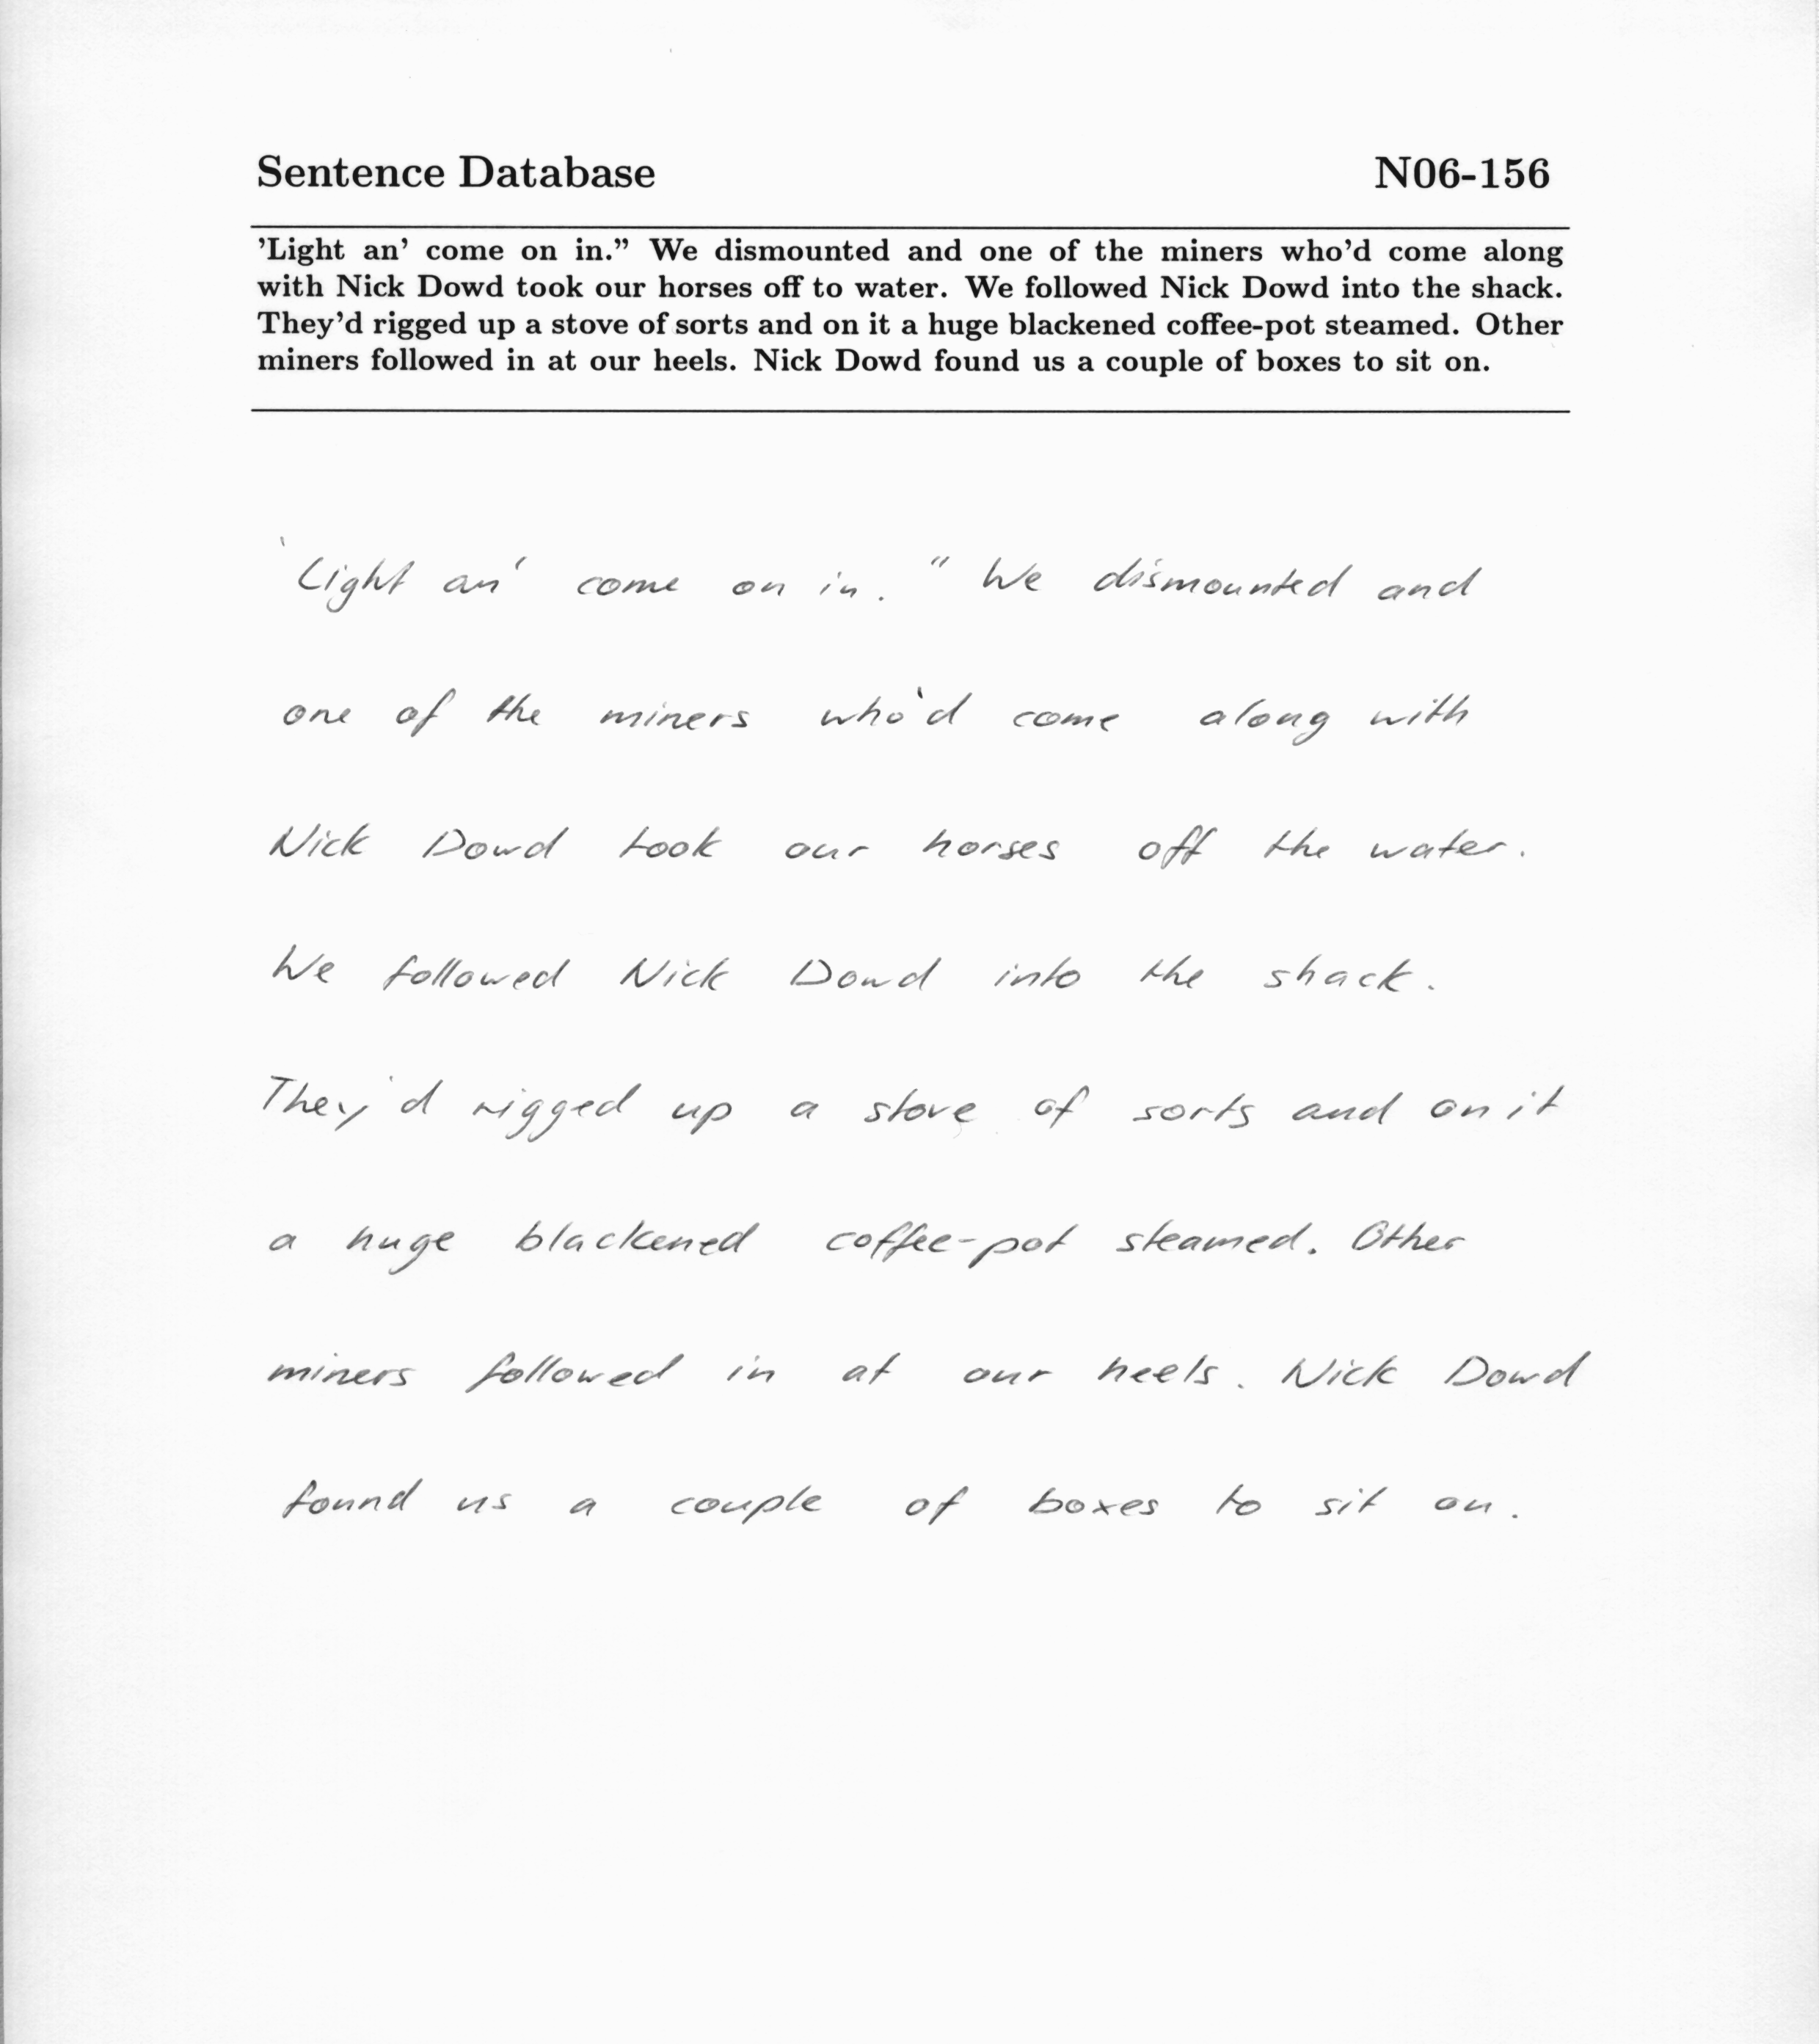 Sentence Database N06-156
’Light an’ come on in.” We dismounted and one of the miners who’d come along
with Nick Dowd took our horses off to water. We followed Nick Dowd into the shack.
They’d rigged up a stove of sorts and on it a huge blackened coffee-pot steamed. Other
miners followed in at our heels. Nick Dowd found us a couple of boxes to sit on.
'Light an' come on in." We dismounted and
one of the miners who'd come along with
Nick Dowd took our horses off the water.
We followed Nick Dowd into the shack.
They'd rigged up a stove of sorts and on it
a huge blackened coffee-pot steamed. Other
miners followed in at our heels. Nick Dowd
found us a couple of boxes to sit on.